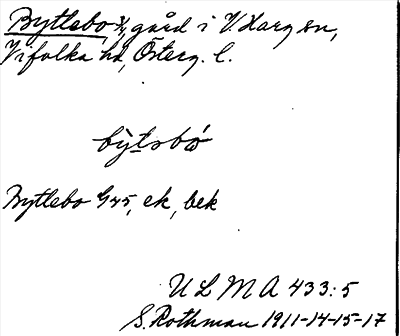 Bytlebo 3/4, gård i V. Harg sn,
Vifolka hd, Österg. l.
by̆tsbω
Bytlebo G 45, ek, bek
U L M A 433:5
S. Rothman 1911-14-15-17